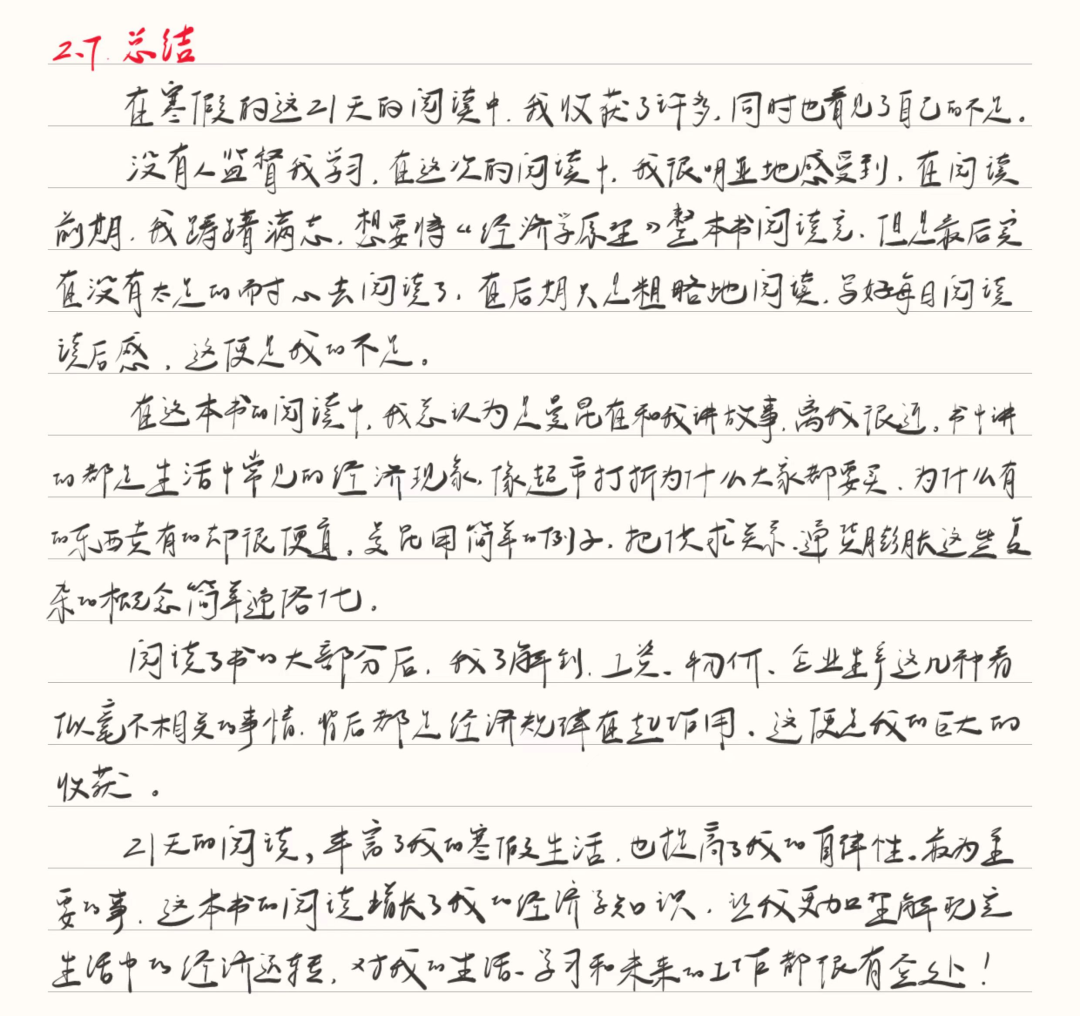 2.7. 总结
在寒假的这21天的阅读中,我收获了许多,同时也看见了自己的不足。
没有人监督我学习,在这次的阅读中,我很明显地感受到,在阅读
前期,我踌躇满志,想要将《经济学原理》整本书阅读完,但是最后实
在没有太足的耐心去阅读了,在后期只是粗略地阅读,写好每日阅读
读后感,这便是我的不足。
在这本书的阅读中,我总认为是曼昆在和我讲故事,离我很近。书中讲
的都是生活中常见的经济现象,像超市打折为什么大家都要买、为什么有
的东西贵有的却很便宜,曼昆用简单的例子,把供求关系、通货膨胀这些复
杂的概念简单通俗化。
阅读了书的大部分后,我了解到,工资、物价、企业生产这几种看
似毫不相关的事情,背后都是经济规律在起作用,这便是我的巨大的
收获。
21天的阅读,丰富了我的寒假生活,也提高了我的自律性。最为重
要的事,这本书的阅读增长了我的经济学知识,让我更加理解现实
生活中的经济运转,对我的生活、学习和未来的工作都很有益处!